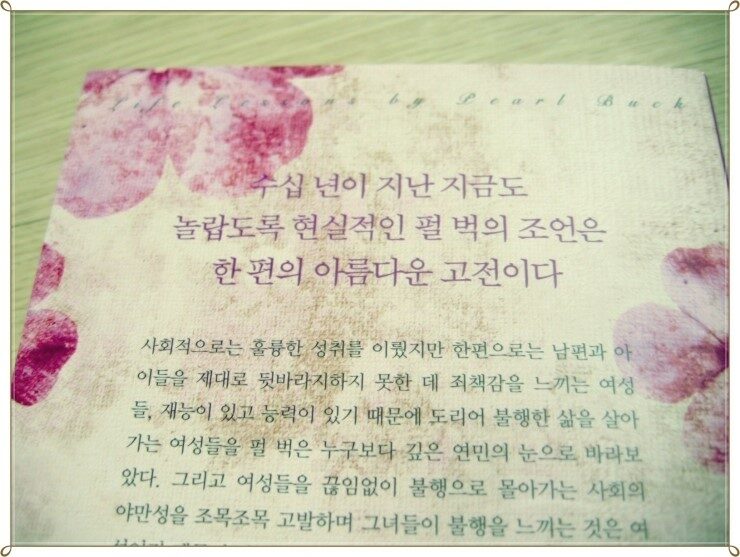 Life Lessons by Pearl Buck
수십 년이 지난 지금도
놀랍도록 현실적인 펄 벅의 조언은
한 편의 아름다운 고전이다
사회적으로는 훌륭한 성취를 이뤘지만 한편으로는 남편과 아
이들을 제대로 뒷바라지하지 못한 데 죄책감을 느끼는 여성
들, 재능이 있고 능력이 있기 때문에 도리어 불행한 삶을 살아
가는 여성들을 펄 벅은 누구보다 깊은 연민의 눈으로 바라보
았다. 그리고 여성들을 끊임없이 불행으로 몰아가는 사회의
야만성을 조목조목 고발하며 그녀들이 불행을 느끼는 것은 여